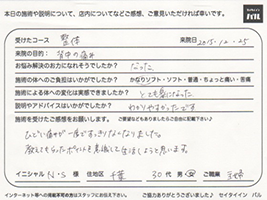 本日の施術や説明について、店内についてなどご感想、ご意見いただければ幸いです。
パル
受けたコース 整体 来院日 2015.12.25
来院の目的: 背中の痛み
お悩み解決のお力になれそうでしたか? だった
施術の体へのご負担はいかがでしたか? かなりソフト・ソフト・普通・ちょっと痛い・苦痛
施術による体への変化は実感できましたか? とても楽になった
説明やアドバイスはいかがでしたか? わかりやすかったです
施術を受けたご感想をお願いします。
ひどい痛みが一度ですっきりなくなりました。
教えてもらったポイントを意識して生活しようと思います。
イニシャル N・S 様 住地区 千葉 30代 男・女 ご職業 主婦
インターネット等への掲載不可の方はスタッフにお伝え下さい。 ご協力ありがとうございました♪ セイタイイン パル